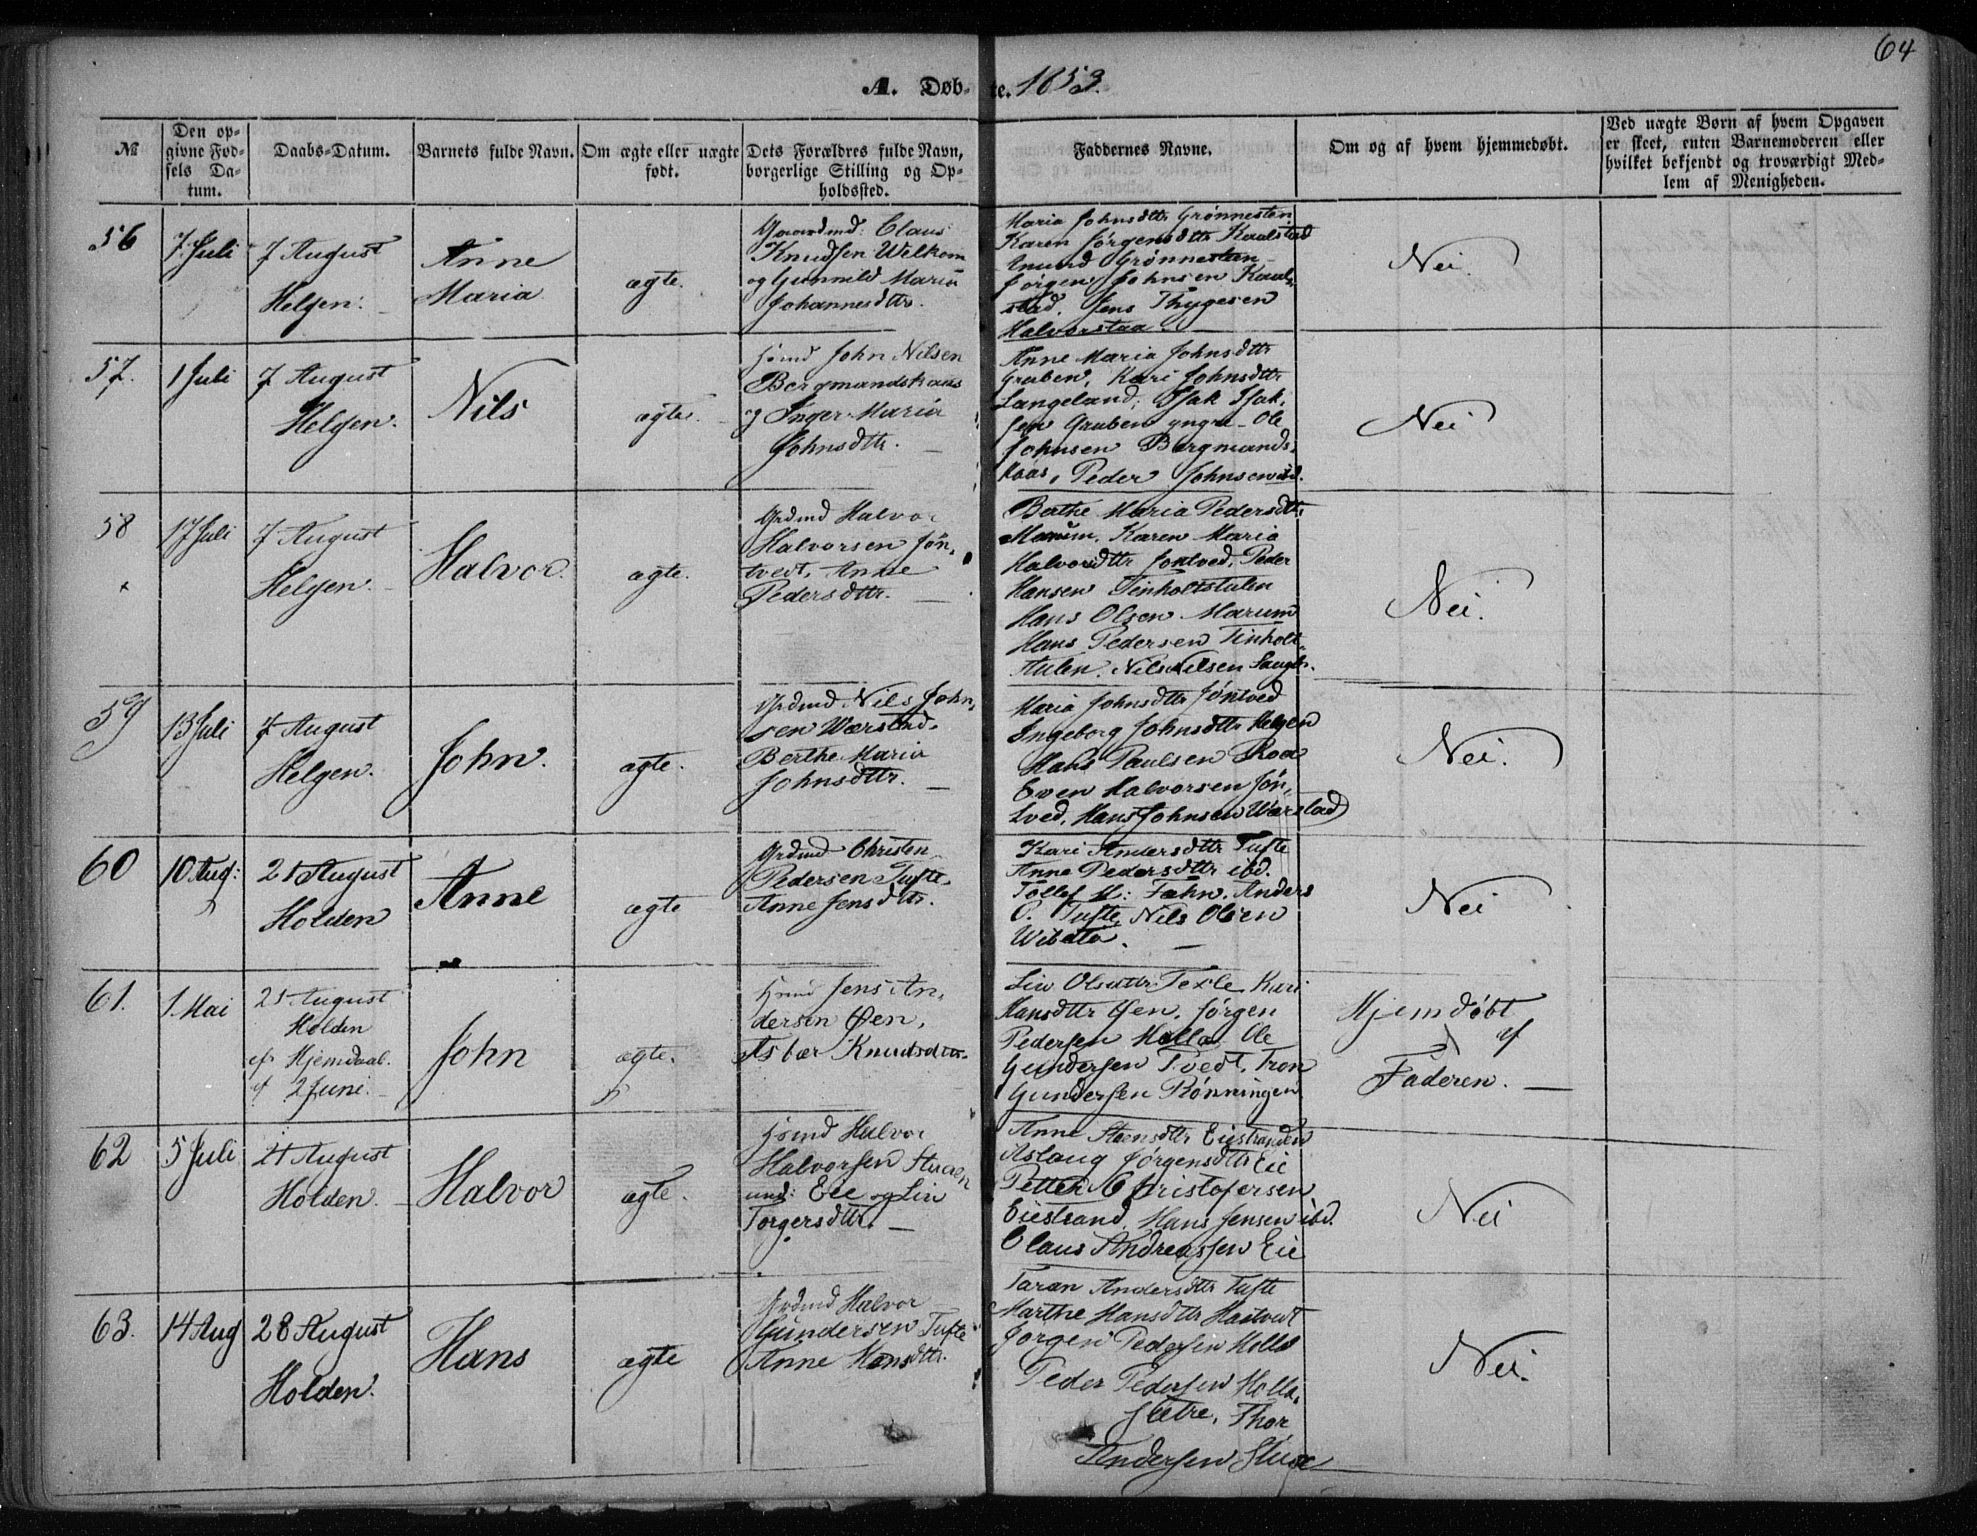 64
A. Døbte. 1853.
№
Den opgivne Fødsels Datum.
Daabs-Datum.
Barnets fulde Navn.
Om ægte eller uægte født.
Dets Forældres fulde Navn, borgerlige Stilling og Opholdssted.
Faddernes Navne.
Om og af hvem hjemmedøbt.
Ved uægte Børn af hvem Opgaven er skeet, enten Barnemoderen eller hvilket bekjendt og troværdigt Medlem af Menigheden.
56
7 Juli
7 August
Helgen.
Anne
Maria
ægte.
Gaardmd: Claus
Knudsen Welkom
og Gunnild Maria
Johannesdttr.
Maria Johnsdttr Grønnesten
Karen Jørgensdttr Kaalstad
Amund Grønnesten
Jørgen Johnsen Kaal-
stad. Jens Thygesen
Halvorstaa
Nei.
57.
1 Juli
7 August
Helgen.
Nils
ægte.
Hsmd John Nilsen
Bergmandskaas
og Inger Maria
Johnsdttr.
Anne Maria Johnsdttr
Gruben, Kari Johnsdttr
Langeland; Isak Isak-
sen Gruben yngre - Ole
Johnsen Bergmands-
kaas, Peder Johnsen ibd.
Nei
58
17 Juli
7 August
Helgen.
Halvor.
ægte.
Grdmd Halvor
Halvorsen Jøn-
tvedt, Anne
Pedersdttr.
Berthe Maria Pedersdttr
Marum. Karen Maria
Halvorsdttr Jøntved. Peder
Hansen Tinholtstulen
Hans Olsen Marum
Hans Pedersen Tinholt-
stulen. Nils Nilsen
Nei.
59
13 Juli
7 August
Helgen.
John.
ægte.
Grdmd Nils John-
sen Wærstad.
Berthe Maria
Johnsdttr.
Maria Johnsdttr Jøntved
Ingeborg Johnsdttr Helgen
Hans Paulsen Roa
Even Halvorsen Jøn-
tved, Hans Johnsen Wærstad
Nei.
60
10 Aug:
21 August
Holden
Anne
ægte
Grdmd Christen
Pedersen Tufte.
Anne Jensdttr.
Kari Andersdttr Tufte
Anne Pedersdttr ibd.
Tollef H: Fæhn. Anders
C. Tufte, Nils Olsen
Wibeto.
Nei
61.
1. Mai
21 August
Holden
ef. Hjemdaab.
af 2 Juni.
John
ægte.
Hsmd Jens An-
dersen Øen,
Asbør Knudsdttr.
Liv Olsdttr Texle. Kari
Hansdttr Øen, Jørgen
Pedersen Holla. Ole
Gundersen Tvedt. Tron
Gundersen Rønningen
Hjemdøbt
af
Faderen.
62
5 Juli
21 August
Holden.
Halvor
ægte.
Hsmd Halvor
Halvorsen
und: Eie og Liv
Torgersdttr.
Anne Steensdttr Eiestranden
Aslaug Jørgensdttr Eie
Petter Christofersen
Eiestrand. Hans Jensen ibd.
Claus Andreassen Eie
Nei
63.
14 Aug
28 August
Holden.
Hans
ægte
Grdmd Halvor
Gundersen Tufte
Anne Hansdttr.
Taran Andersdttr Tufte
Marthe Hansdttr Haatvedt
Jørgen Pedersen Holla
Peder Pedersen Holla-
Sætre, Thor
Andersen
Nei.